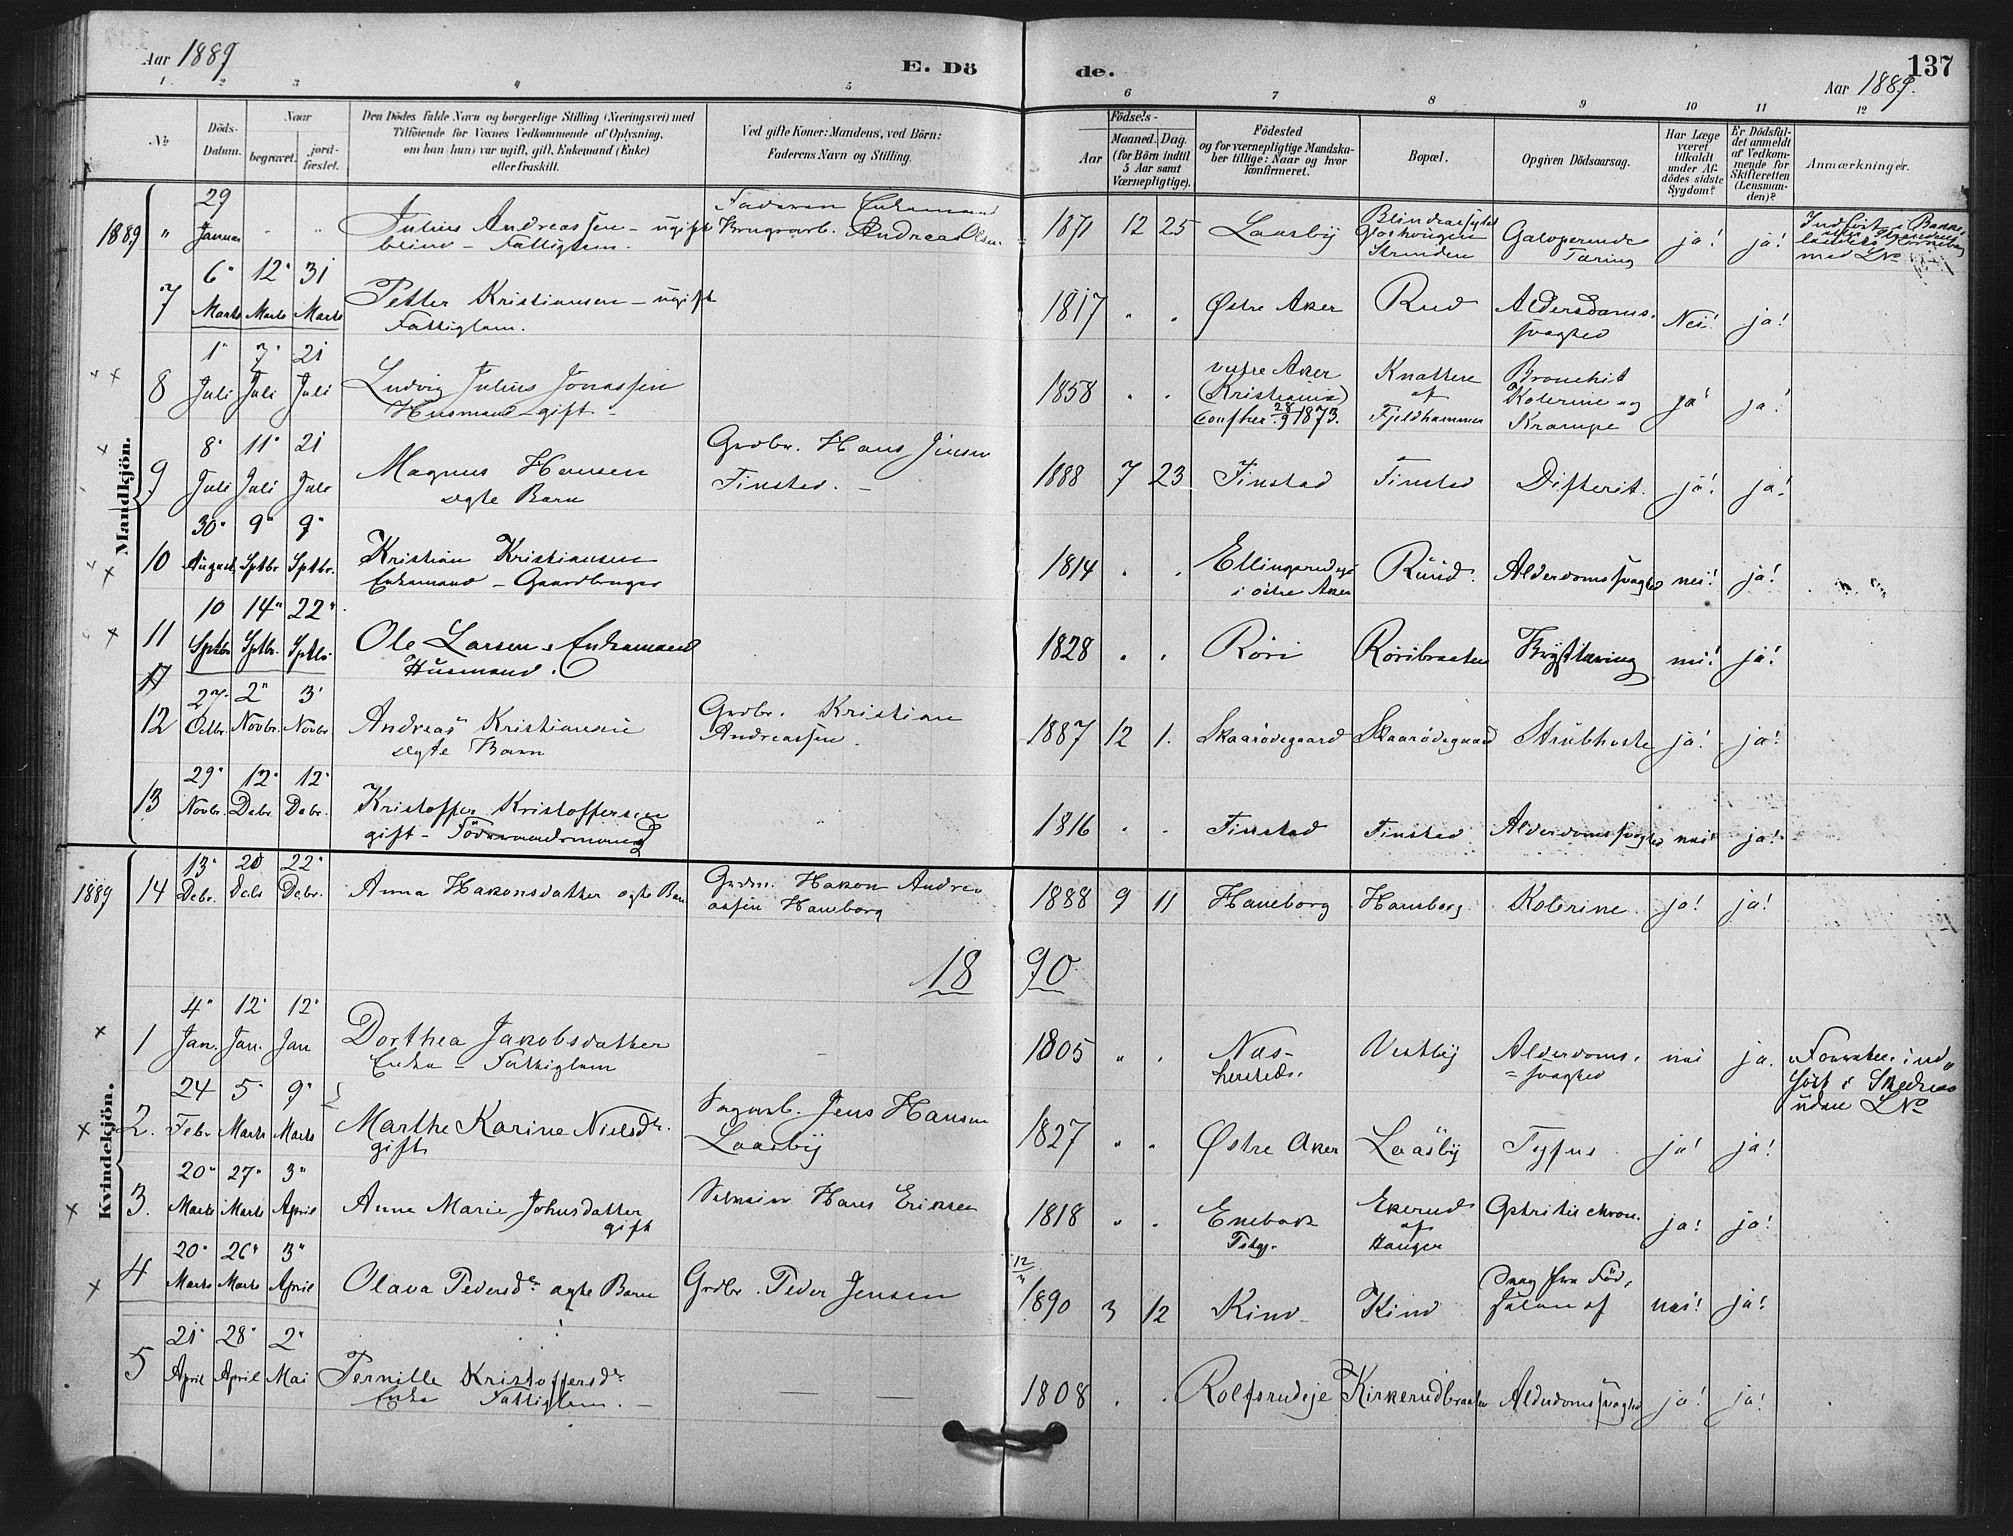 Aar 1889
E. Döde.
137
Aar 1889.
1. 2 3 4 5 6 7 8 9 10 11 12
No
Döds-Datum.
Naar
begravet.
jord-fæstet.
Den Dödes fulde Navn og borgerlige Stilling (Næringsvei) med
Tilföiende for Voxnes Vedkommende af Oplysning,
om han (hun) var ugift, gift, Enkemand (Enke)
eller fraskilt.
Ved gifte Koner: Mandens, ved Börn:
Faderens Navn og Stilling.
Födsels-
Aar
Maaned.
Dag.
(for Börn indtil
5 Aar samt
Værnepligtige).
Födested
og for værnepligtige Mandska-
ber tillige: Naar og hvor
konfirmeret.
Bopæl.
Opgiven Dödsaarsag.
Har Læge
været
tilkaldt
under Af-
dödes sidste
Sygdom?
Er Dödsfal-
det anmeldt
af Vedkom-
mende for
Skifteretten
(Lensman-
den)?
Anmærkninger.
Mandkjön.
1889 " 29 Januar " " Julius Andreassen - ugift
blind - Fattiglem.
Faderen Enkemand
Brugsarb. Andreas Olsen
1871 12 25 Laasby
Strinden
Galoperende
Tæring
ja! ja!
7 6 Marts 12 Marts 31 Marts Petter Kristiansen - ugift
Fattiglem.
1817 " " Østre Aker Rud Alderdoms-
svaghed
Nei! ja!
8 1 Juli 7 Juli 21 Juli Ludvig Julius Jonassen
Husmand - gift -
1858 " " vestre Aker
(Kristiania)
confher. 28/9 1873.
Knattere
af
Fjeldhammer
Bronchit
Kolerine og
Krampe
ja! ja!
9 8 Juli 11 Juli 21 Juli Magnus Hansen
ægte Barn
Grdbr. Hans Jensen
Finstad. -
1888 7 23 Finstad Finstad Difterit. ja! ja!
10 30 August 9 Sptbr 9 Sptbr. Kristian Kristiansen
Enkemand - Gaardbruger
1814 " " Ellingsrudeje
i østre Aker
Ruud. Alderdomssvaghed nei! ja!
11 10 Sptbr 14 Sptbr. 22 Sptbr Ole Larsen, Enkemand
Husmand.
1828 " " Röri Röribraaten Brysttæring nei! ja!
12 27 Octbr. 2 Novbr. 3 Novbr Andreas Kristiansen
ægte Barn
Grdbr. Kristian
Andreassen.
1887 12 1. Skaarödegaard Skaarödegaard Strubhoste ja! ja!
13 29 Novbr. 12 Debr. 12 Debr. Kristoffer Kristoffersen
gift - Föderaadsmand
1816 " " Finstad Finstad Alderdomssvaghed nei! ja!
Kvindekjön.
1889 14 13 Debr. 20 Debr 22 Debr. Anna Hakonsdatter ægte Barn
Grdbr. Hakon Andre-
assen Haneborg
1888 9 11 Haneborg Haneborg Kolerine ja! ja!
1890
1 4 Jan. 12 Jan. 12 Jan Dorthea Jakobsdatter
Enke - Fattiglem
1805 " " Nes-
herreds.
Vestby Alderdoms-
svaghed
nei ja.
ind-
fört i Skedsmo
uden LNo
2. 24 Febr 5 Marts 9 Marts Marthe Karine Nielsdr.
gift
Sagarb. Jens Hansen
Laasby
1827 " " Østre Aker Laasby Tyfus ja! ja!
3. 20 Marts 27 Marts 3 April Anne Marie Johnsdatter
gift
Hans Eriksen
1818 " " Enebak
Ekerud
af
Hauger
chron. ja! ja!
4 20 Marts 26 Marts 3 April Olava Pedersdr ægte Barn Grdbr. Peder Jensen
12/3 1890 3 12 Kind Kind Svag fra Föd-
selen af
nei! ja!
5 21 April 28 April 2 Mai Pernille Kristoffersdr
Enke Fattiglem. -
1808 " " Rolfsrudeje Kirkerudbraaten Alderdomssvaghed ja! ja!